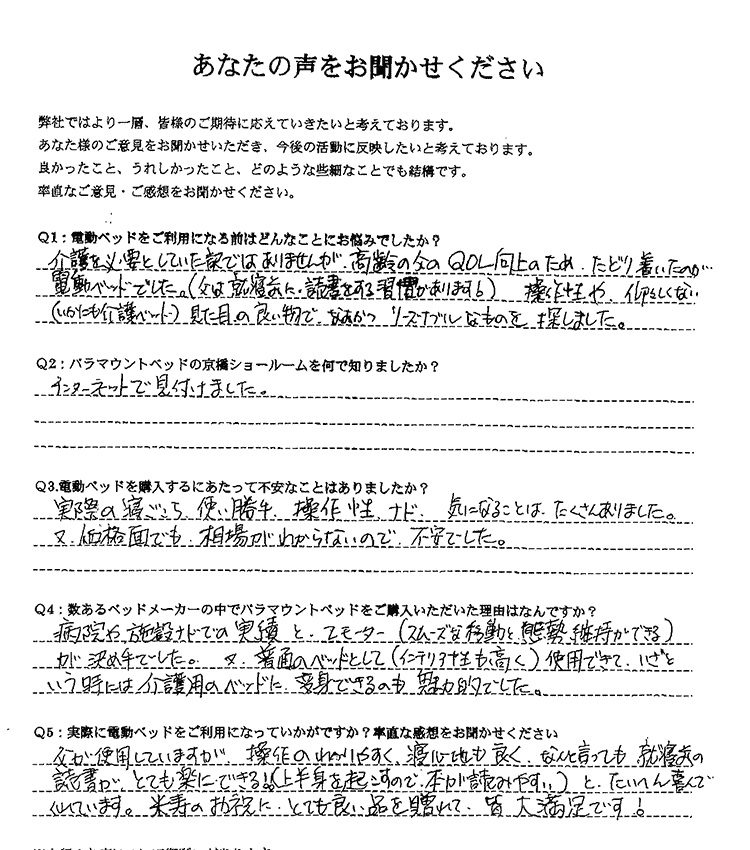 あなたの声をお聞かせください
弊社ではより一層、皆様のご期待に応えていきたいと考えております。
あなた様のご意見をお聞かせいただき、今後の活動に反映したいと考えております。
良かったこと、うれしかったこと、どのような些細なことでも結構です。
率直なご意見・ご感想をお聞かせください。
Q1：電動ベッドをご利用になる前はどんなことにお悩みでしたか？
介護を必要としていた訳ではありませんが、高齢の父のQOL向上のため、たどり着いたのが
電動ベッドでした。(父は就寝前に、読書をする習慣があります!) 操作性や、仰々しくない
(いかにも介護ベット) 見た目の良い物で、なおかつ リーズナブルなものを 探しました。
Q2：パラマウントベッドの京橋ショールームを何で知りましたか？
インターネットで見付けました。
Q3.電動ベッドを購入するにあたって不安なことはありましたか？
実際の寝ごこち、使い勝手、操作性、ナド、 気になることは、たくさんありました。
又、価格面でも、相場がわからないので、不安でした。
Q4：数あるベッドメーカーの中でパラマウントベッドをご購入いただいた理由はなんですか？
病院や施設ナドでの実績と、モーター(スムーズな移動と、態勢維持ができる)
が決め手でした。 又、普通のベッドとして(インテリア性も高く) 使用できて、いざと
いう時には介護用のベッドに、変身できるのも 魅力的でした。
Q5：実際に電動ベッドをご利用になっていかがですか？率直な感想をお聞かせください
父が使用していますが 操作のわかりやすく、寝心地も良く、なんと言っても 就寝前の
読書が、とても楽にできる!(上半身を起こすので、本が読みやすい) と、たいへん喜んで
くれています。米寿のお祝に、とても良い品を贈れて、皆 大満足です!